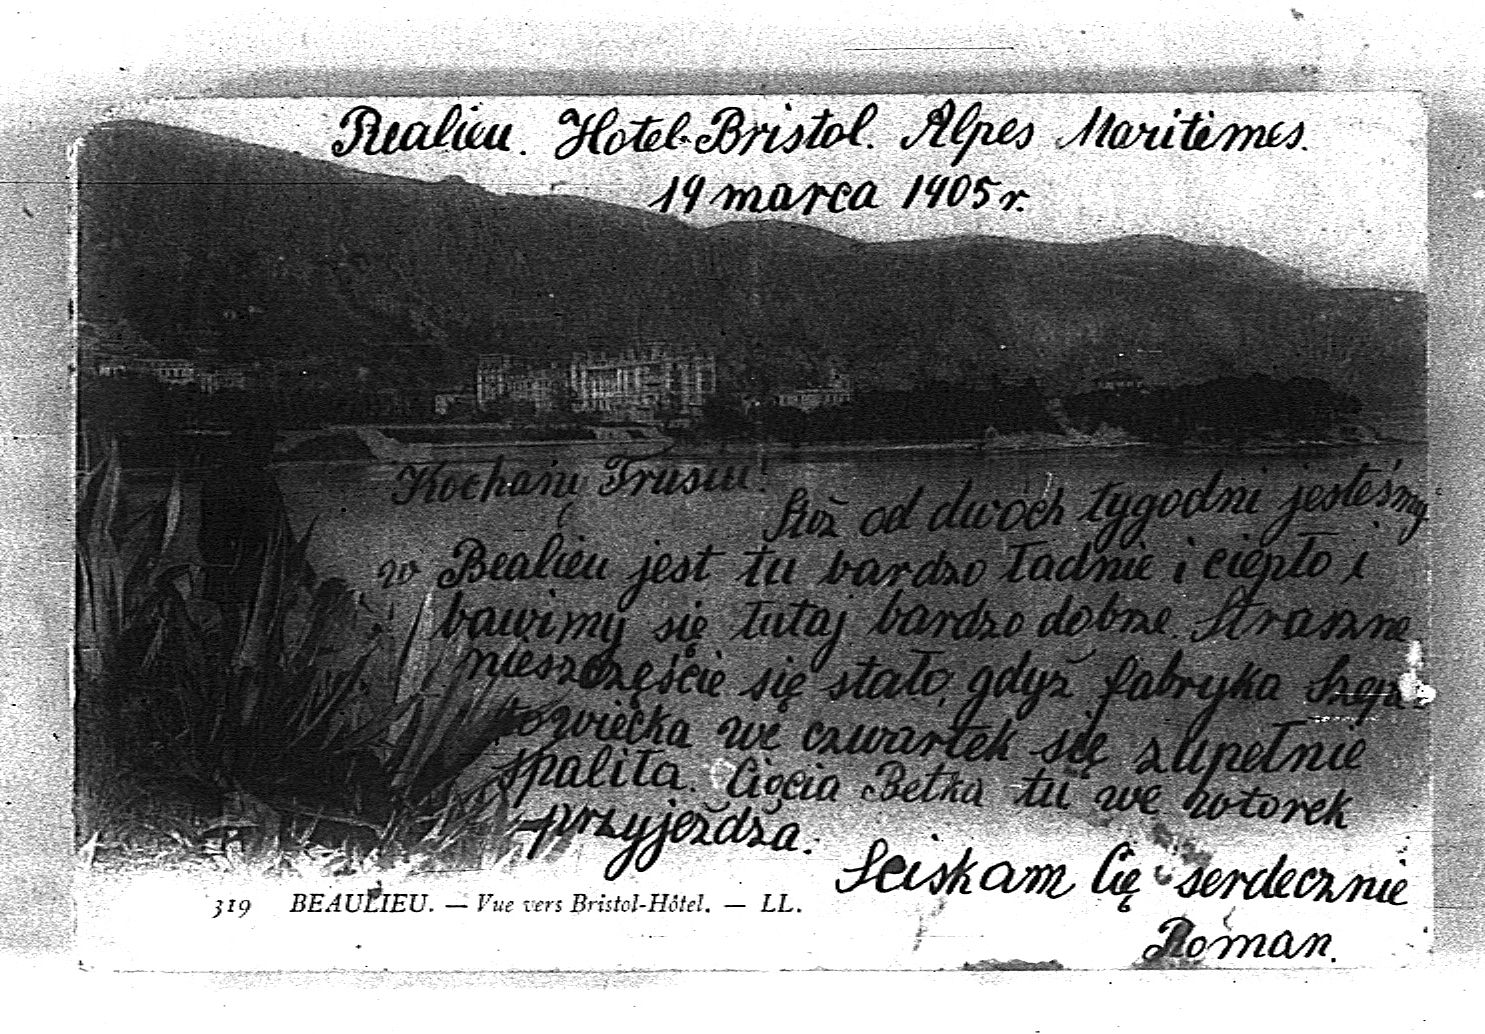 Bealieu. Hotel-Bristol. Alpes Maritimes.
19 marca 1905 r.
Kochany Trusiu!
Już od dwóch tygodni jesteśmy
w Bealieu jest tu bardzo ładnie i ciepło i
bawimy się tutaj bardzo dobrze. Straszne
nieszczęście się stało, gdyż fabryka
we czwartek się zupełnie
spaliła. Ciocia Betka tu we wtorek
przyjeżdża.
Sciskam Cię serdecznie
Roman.
319 BEAULIEU. — Vue vers Bristol-Hôtel. — LL.